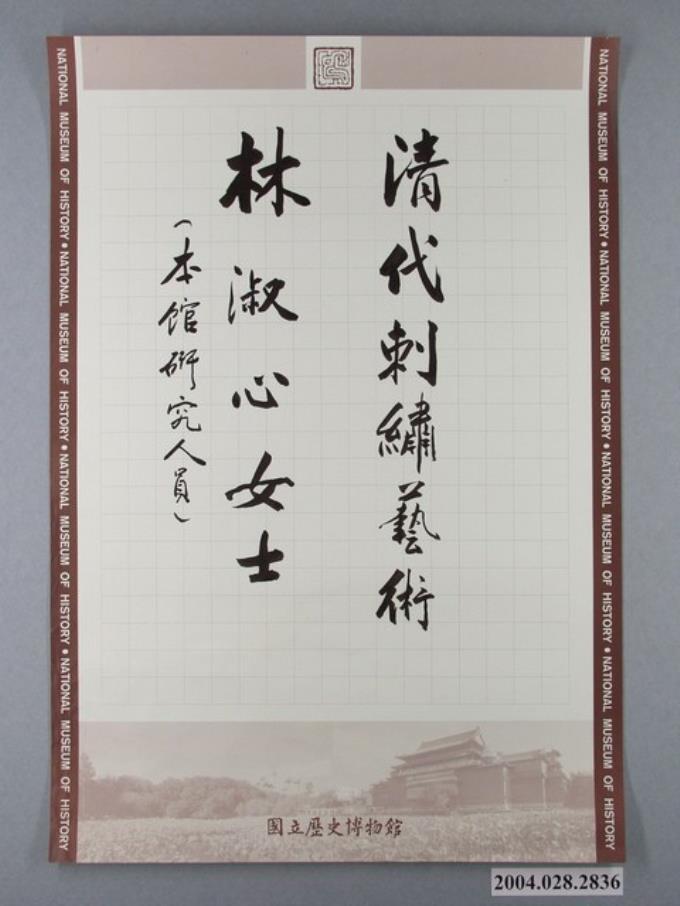 清代刺繡藝術
林淑心女士
(本館研究人員)
NATIONAL MUSEUM OF HISTORY • NATIONAL MUSEUM OF HISTORY • NATIONAL MUSEUM OF HISTORY • NATIONAL MUSEUM OF HISTORY
NATIONAL MUSEUM OF HISTORY • NATIONAL MUSEUM OF HISTORY • NATIONAL MUSEUM OF HISTORY • NATIONAL MUSEUM OF HISTORY
國立歷史博物館
2004.028.2836